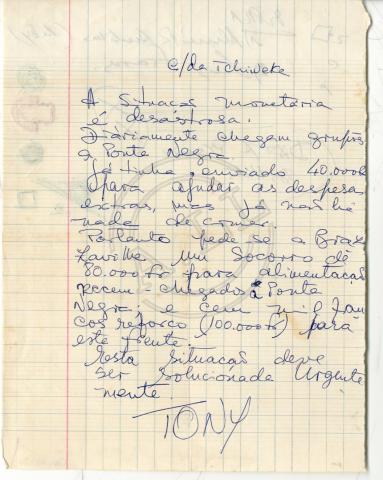 c/da Tchiweke
A situação monetária
é desastrosa.
Diariamente chegam grupos
a Ponte Negra
Já tinha enviado 40.000
para ajudar as despesas
extras, mas já não há
nada de comer.
Portanto pede-se a Braz
zaville um socorro de
80.000 fr para alimentação
recem-chegados à Ponte
Negra; e cem mil fran
cos reforço (100.000 fr) para
este frente.
Esta situação deve
ser solucionada urgente
mente.
TONY